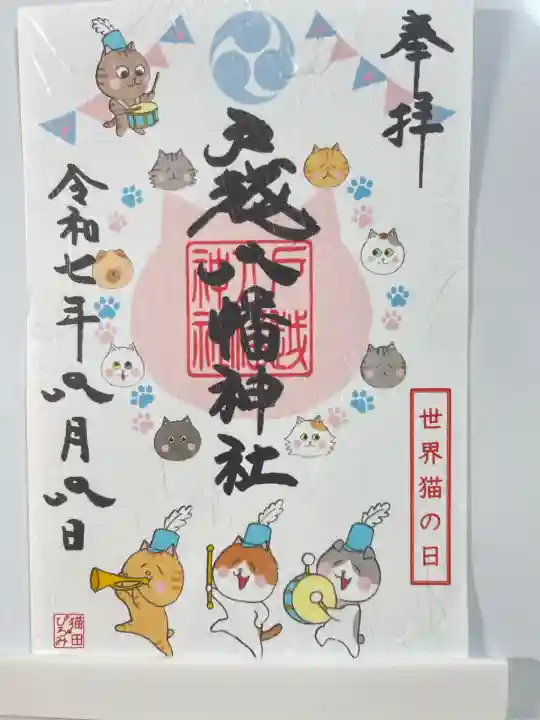 奉拝
戸越八幡神社
戸越八幡神社
令和七年八月八日
世界猫の日
猫田
ぴろみ